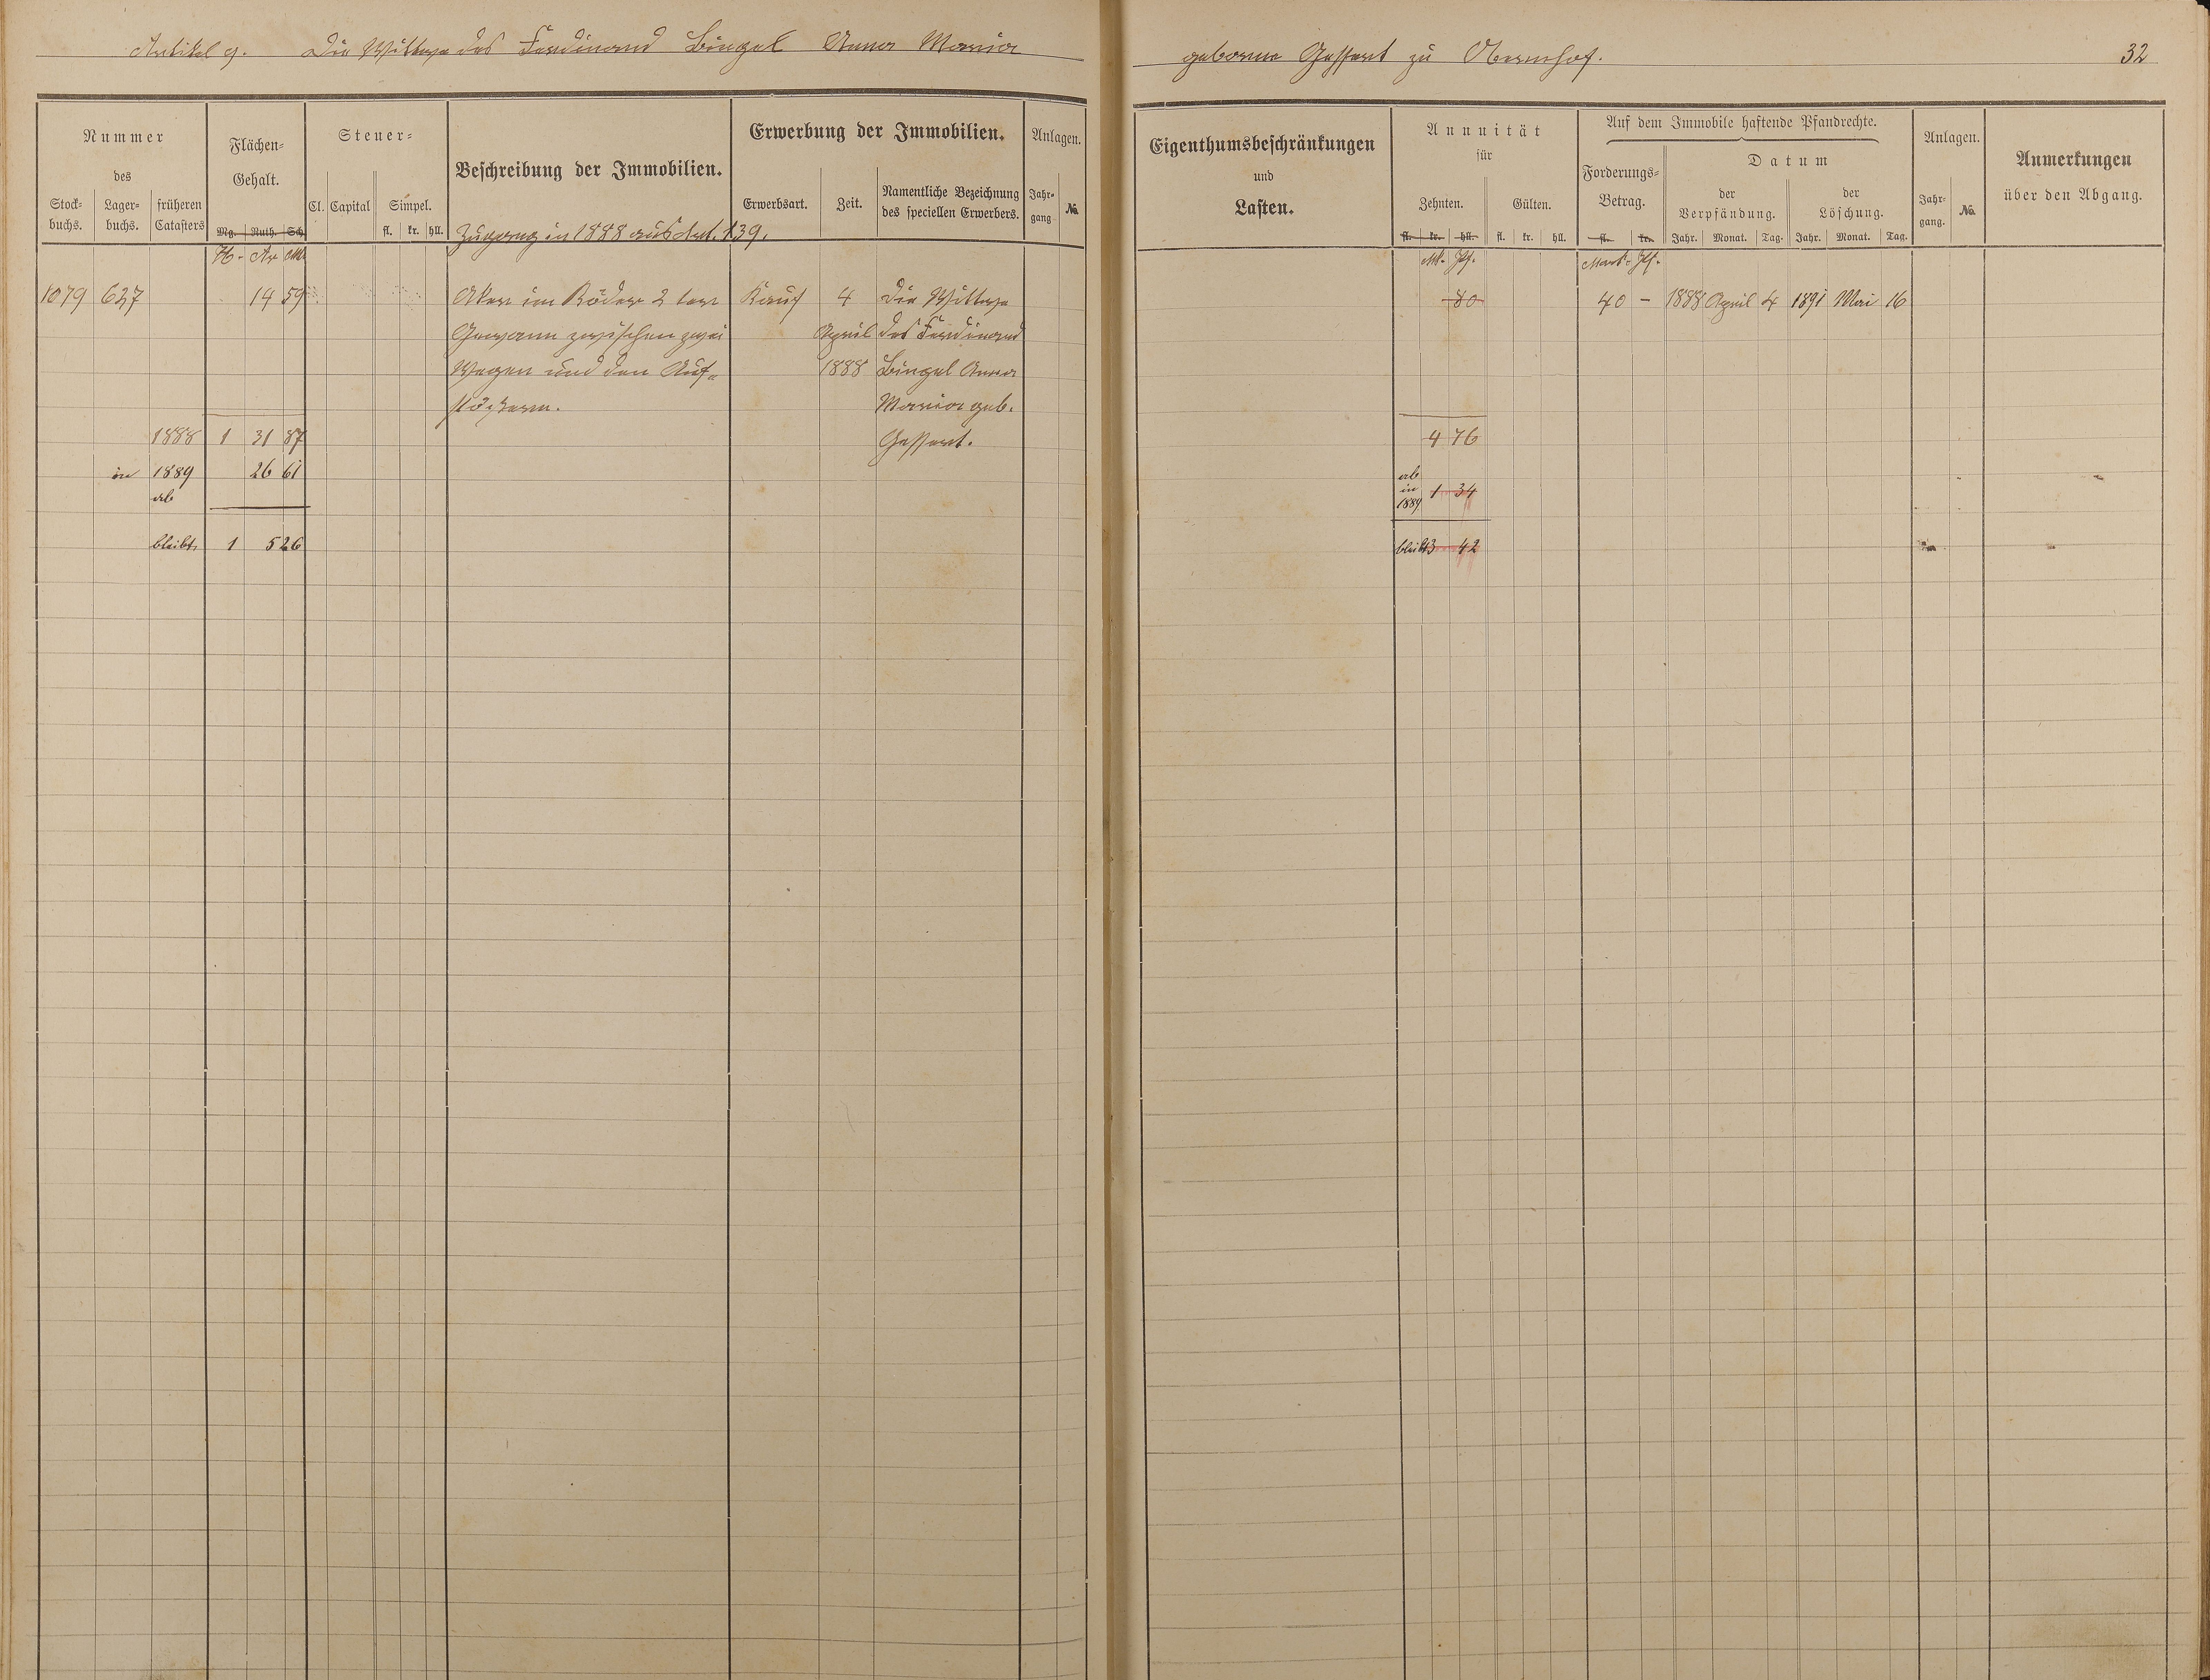 Artikel 9. Die Wittwe des Ferdinand Bingel Anna Maria
geborne Gessert zu Obernhof. 32
Nummer
des
Stock-buchs. Lager-buchs. früheren Catasters
Flächen-
Gehalt.
Mg. Ruth. Sch.
Steuer-
Cl. Capital Simpel.
fl. kr. hll.
Beschreibung der Immobilien.
Zugang in 1888 aus Art. 139.
Erwerbung der Immobilien.
Erwerbsart. Zeit. Namentliche Bezeichnung
des speciellen Erwerbers.
Anlagen.
Jahr-
gang. No.
H. Ar Mtr
1079 627 14 59 Aker im Röder 2 ter Kauf 4 die Wittwe
Gewann zwischen zwei April des Ferdinand
Wegen und den Auf- 1888 Bingel Anna
stößern. Maria geb.
1888 1 31 87 Gessert.
in 1889 26 61
ab
bleibt 1 5 26
Eigenthumsbeschränkungen
und
Lasten.
Annuität
für
Zehnten. Gülten.
fl. kr. hll. fl. kr. hll.
Auf dem Immobile haftende Pfandrechte.
Forderungs-
Betrag.
fl. kr.
Datum
der
Verpfändung.
der
Löschung.
Jahr. Monat. Tag. Jahr. Monat. Tag.
Anlagen.
Jahr-
gang. No.
Anmerkungen
über den Abgang.
Mk. Pf. Mark. Pf.
80 40 — 1888 April 4 1891 Mai 16
4 76
ab
in
1889 1 34
bleibt 3 42